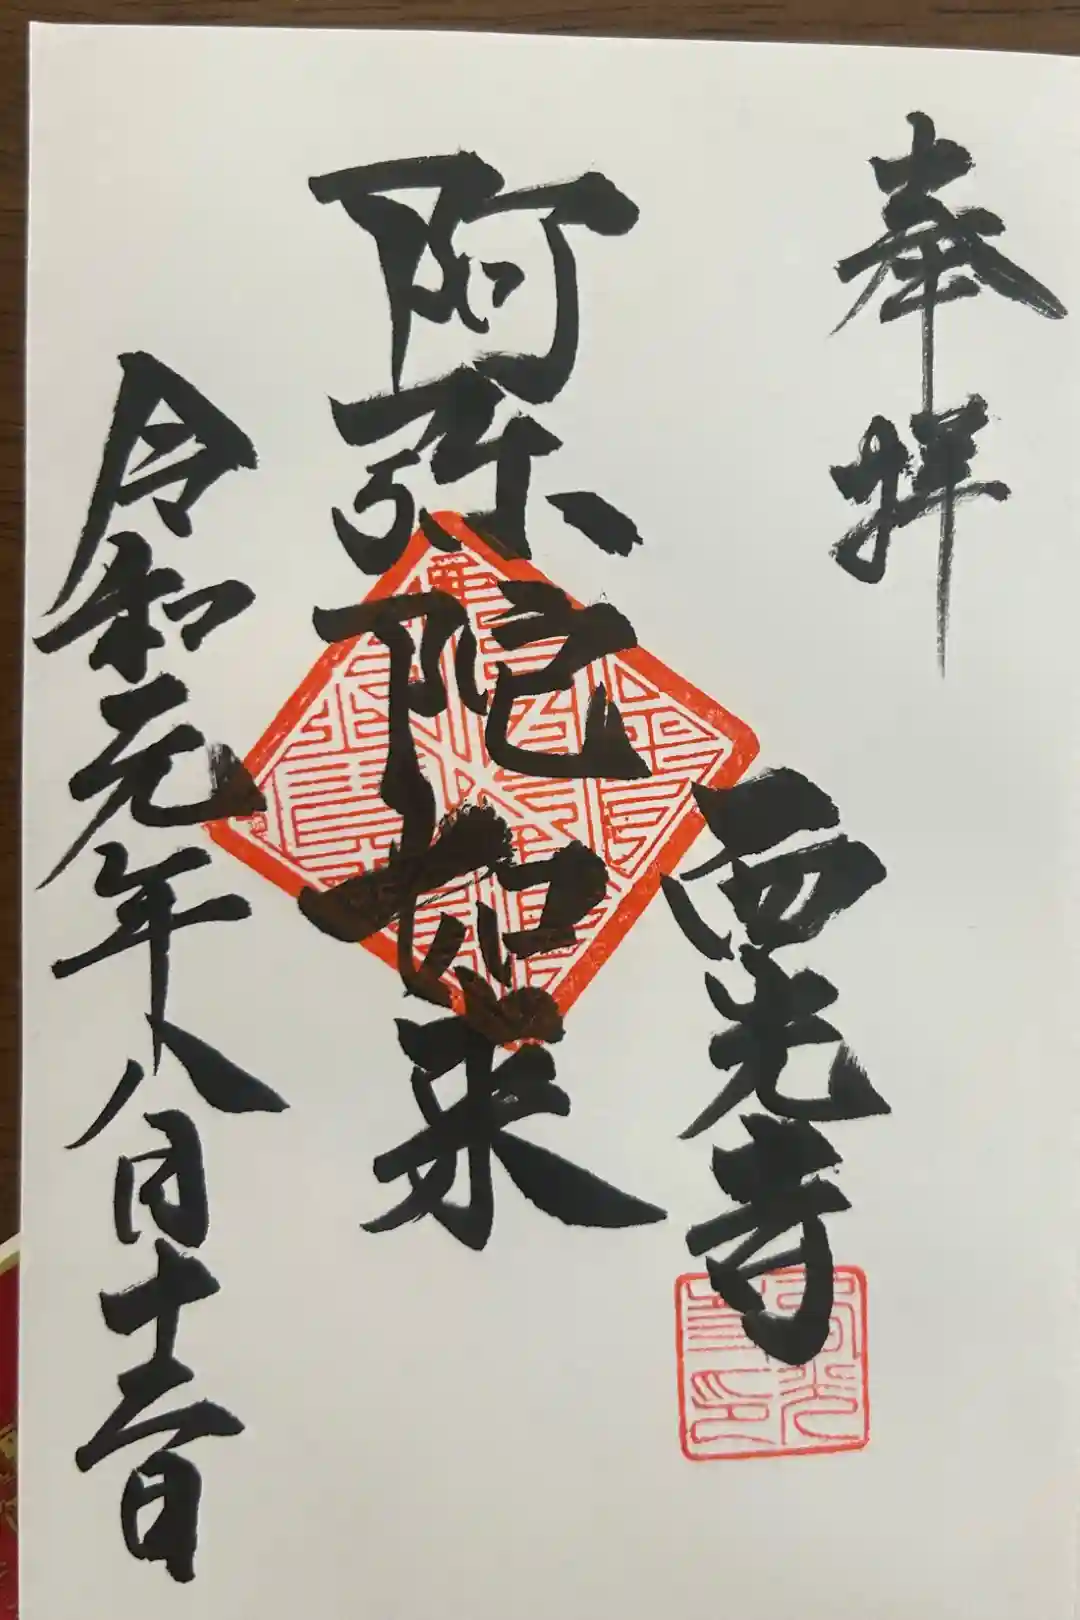 奉拝
西光寺
阿弥陀如来
令和元年八月十二日